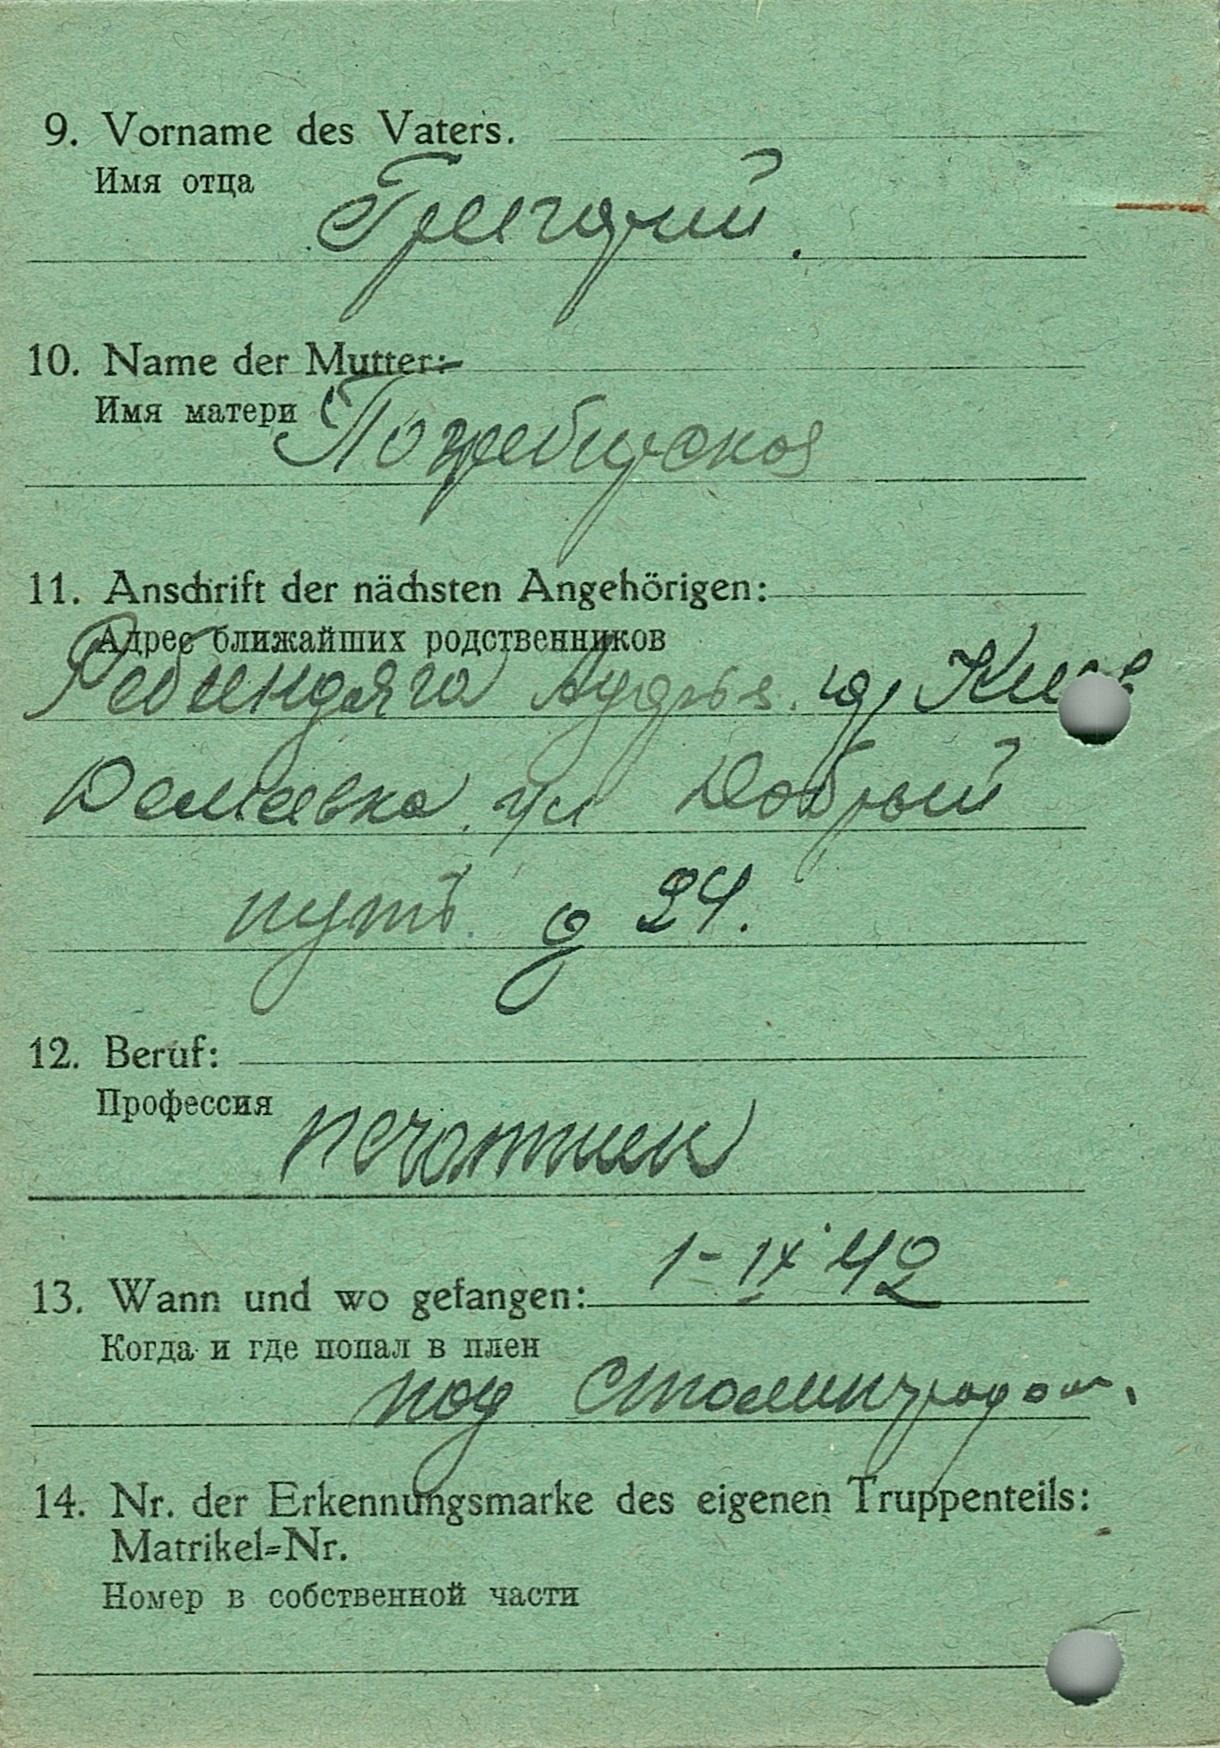 9. Vorname des Vaters.
Имя отца
Григорий.
10. Name der Mutter:
Имя матери
Погребирская
11. Anschrift der nächsten Angehörigen:
Адрес ближайших родственников
Ребиндяга гор Киев
Демеевка. ул Добрый
путь. д 24.
12. Beruf:
Профессия
печатник
1-IX 42
13. Wann und wo gefangen:
Когда и где попал в плен
под Сталинградом.
14. Nr. der Erkennungsmarke des eigenen Truppenteils:
Matrikel=Nr.
Номер в собственной части